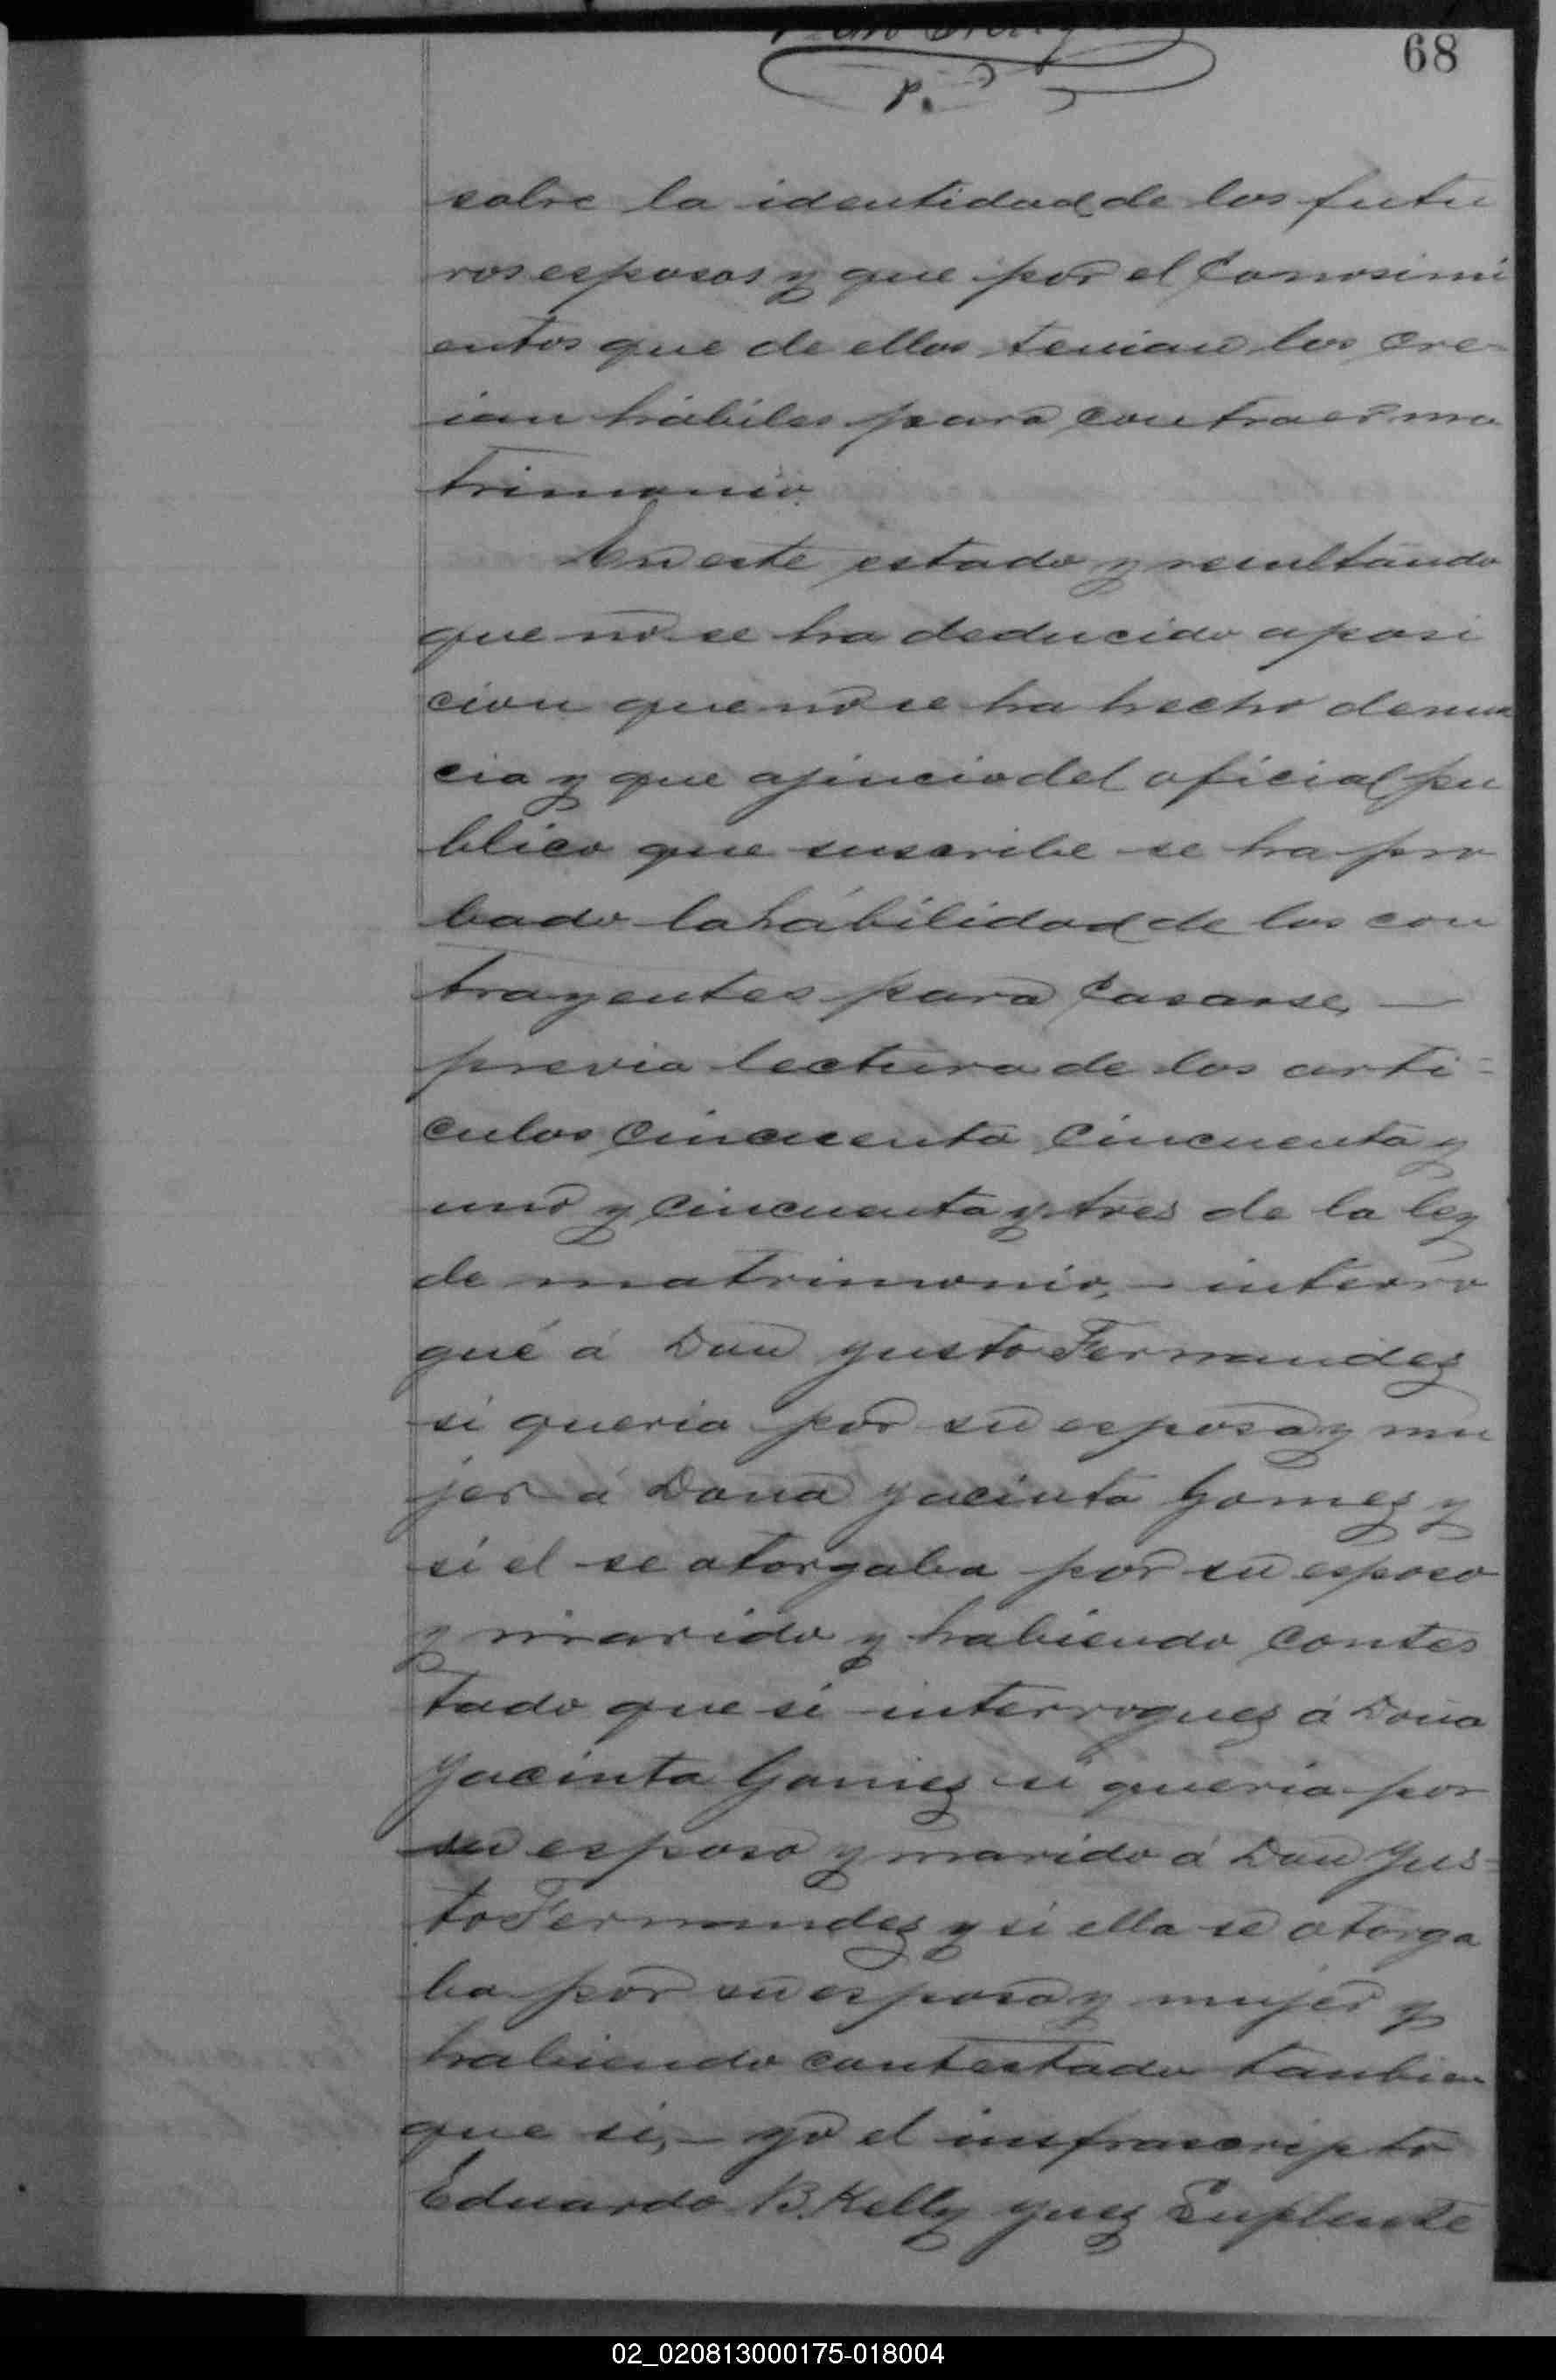 68
P.
sobre la identidad de los futu
ros esposos y que por el Conosimi
entos que de ellos tenian los cre-
ian hábiles para contraer ma
trimonio.
En este estado y resultando
que no se ha deducido oposi
cion que no se ha hecho denun
cia y que ajincio del oficial pu
blico que suscribe se ha pro
bado la hábilidad de los con
trayentes para Casarse, —
previa lectura de los arti=
culos cincuenta cincuenta y
uno y cincuenta y tres de la ley
de matrimonio, - interro
gué á Don Justo Fernandez
si queria por su esposa y mu
jer á Dona Jacinta Gomez y
si el se otorgaba por su esposo
y marido y habiendo contes
tado que si interroguez á Doña
Jacinta Gomez si queria por
su esposo y marido á Don Jus=
to Fernandez y si ella se otorga
ba por su esposa y mujer y
habiendo contestado tanbien
que si, - yo el insfrascripto
Eduardo B. Kelly Juez Suplente
02_020813000175-018004